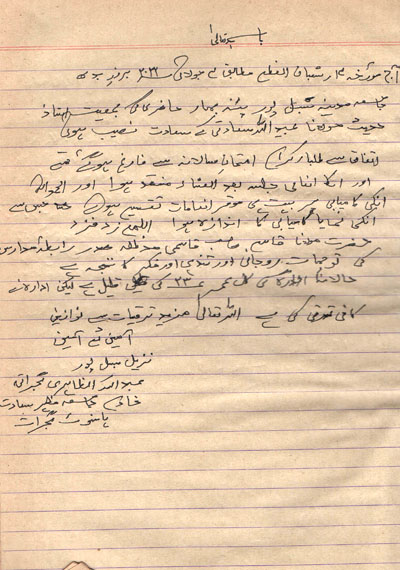 باسمہ تعالیٰ
آج مورخہ ۱۴ شعبان المعظم مطابق ۲ جولائی بروز بدھ
جامعہ مدینہ سبل پور پٹنہ بہار حاضری کی بمعیت استاذ
حدیث مولانا عبد اللہ سعادتی کے سعادت نصیب ہوئی
اتفاق سے طلباء کرام امتحان سالانہ سے فارغ ہو گئے تھے
اور انکا انعامی جلسہ بعد العشاء منعقد ہوا اور الحمد للہ
انکی کامیابی پر بہت ہی موقر انعامات تقسیم ہوئے جس سے
انکی نمایا کامیابی کا اندازہ ہوا اللهم زد فزد
حضرت مولانا قاسم صاحب قاسمی مدظلہ صدر رابطہ مدارس
کی توجہات روحانی اور فکر کا نتیجہ ہے
حالانکہ ادارہ کی کل عمر ۲۳ کی قلیل ہے لیکن ادارہ نے
کافی ترقی کی ہے اللہ تعالیٰ مزید ترقیات سے نوازیں
آمین ثم آمین
نزیل سبل پور
عبد اللہ المظاہری گجراتی
خادم جامعہ مظہر سعادت
ہانسوٹ گجرات